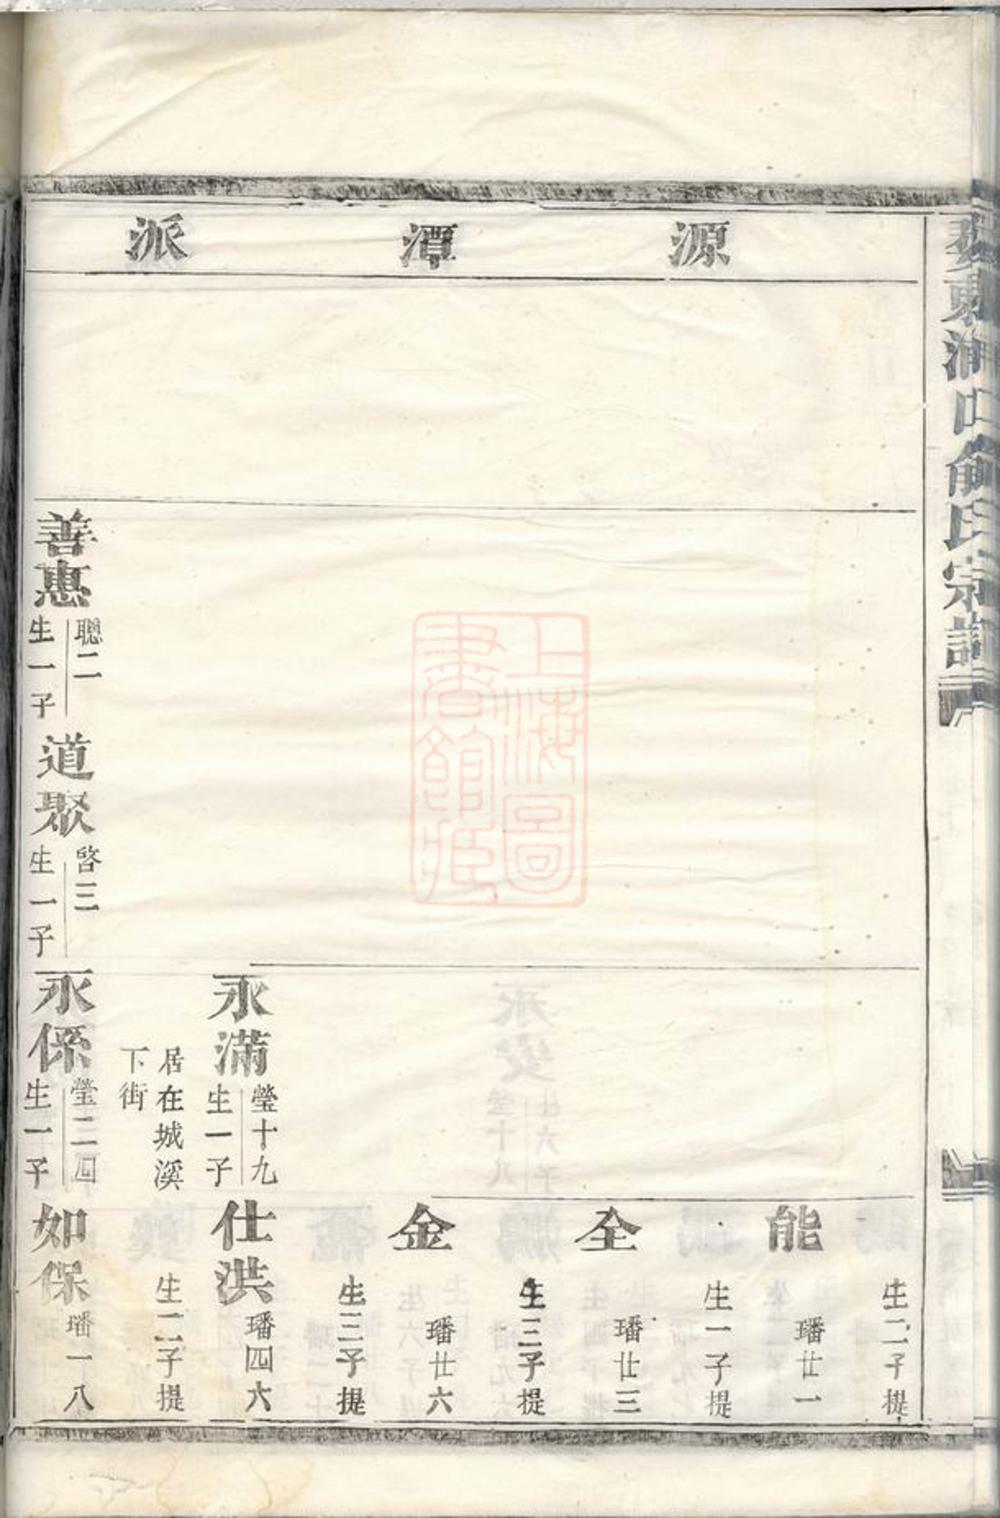 源潭派
東浦口俞氏宗譜
生二子提
能
璠廿一
生一子提
仝
璠廿三
生三子提
金
璠廿六
生三子提
永滿
瑩十九
生一子
居在城溪
下街
仕洪
璠四六
生二子提
善惠
聰二
生一子
道聚
啓三
生一子
永係
瑩二四
生一子
如保
璠一八
上海圖書館藏